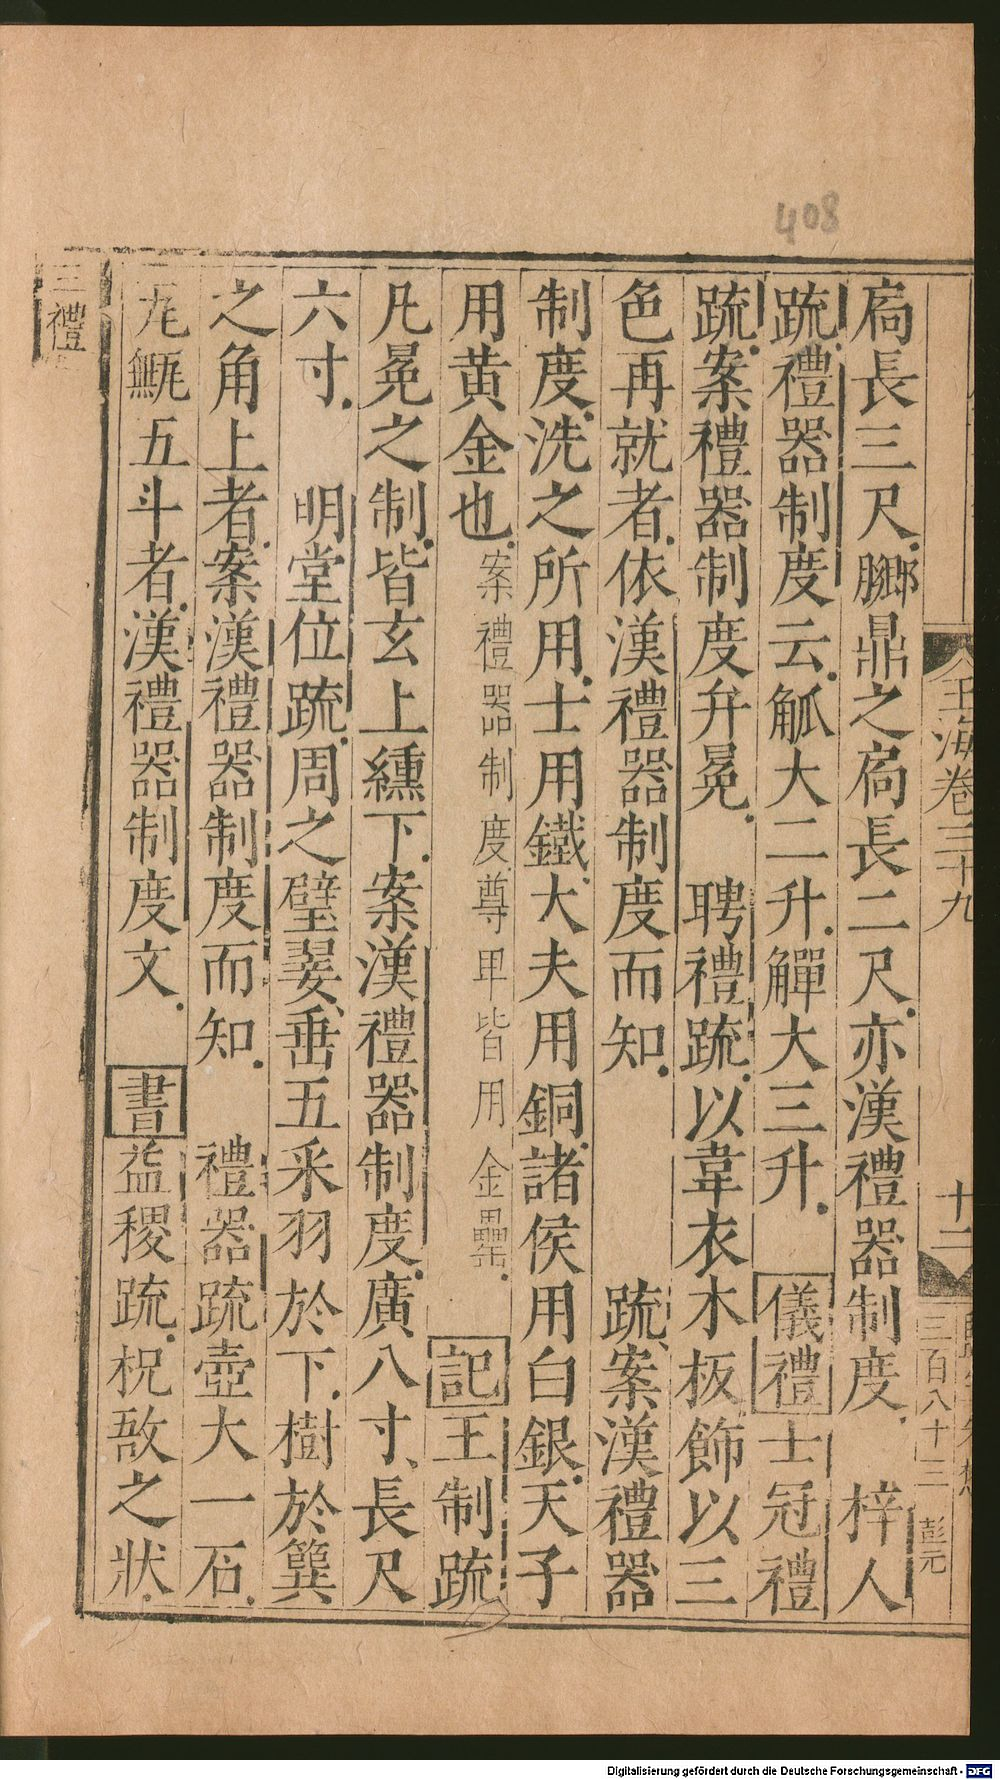 408
玉海卷三十九
十二
三百八十三
彭元
扃長三尺膷鼎之扃長二尺亦漢禮器制度　梓人
疏禮器制度云觚大二升觶大三升　儀禮士冠禮
疏案禮器制度弁冕　聘禮疏以韋衣木板飾以三
色再就者依漢禮器制度而知　疏案漢禮器
制度洗之所用士用鐵大夫用銅諸侯用白銀天子
用黄金也案禮器制度尊卑皆用金罍　記王制疏
凡冕之制皆玄上纁下案漢禮器制度廣八寸長尺
六寸　明堂位疏周之璧翣垂五采羽於下樹於簨
之角上者案漢禮器制度而知　禮器疏壺大一石
瓦甒五斗者漢禮器制度文　書益稷疏柷敔之狀
三禮
Digitalisierung gefördert durch die Deutsche Forschungsgemeinschaft - DFG